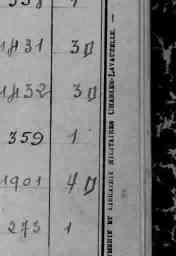 1431 3
1432 3
359 1
1901 4
273 1
MERIE ET LIBRAIRIE MILITAIRES CHARLES-LAVAUZELLE. —